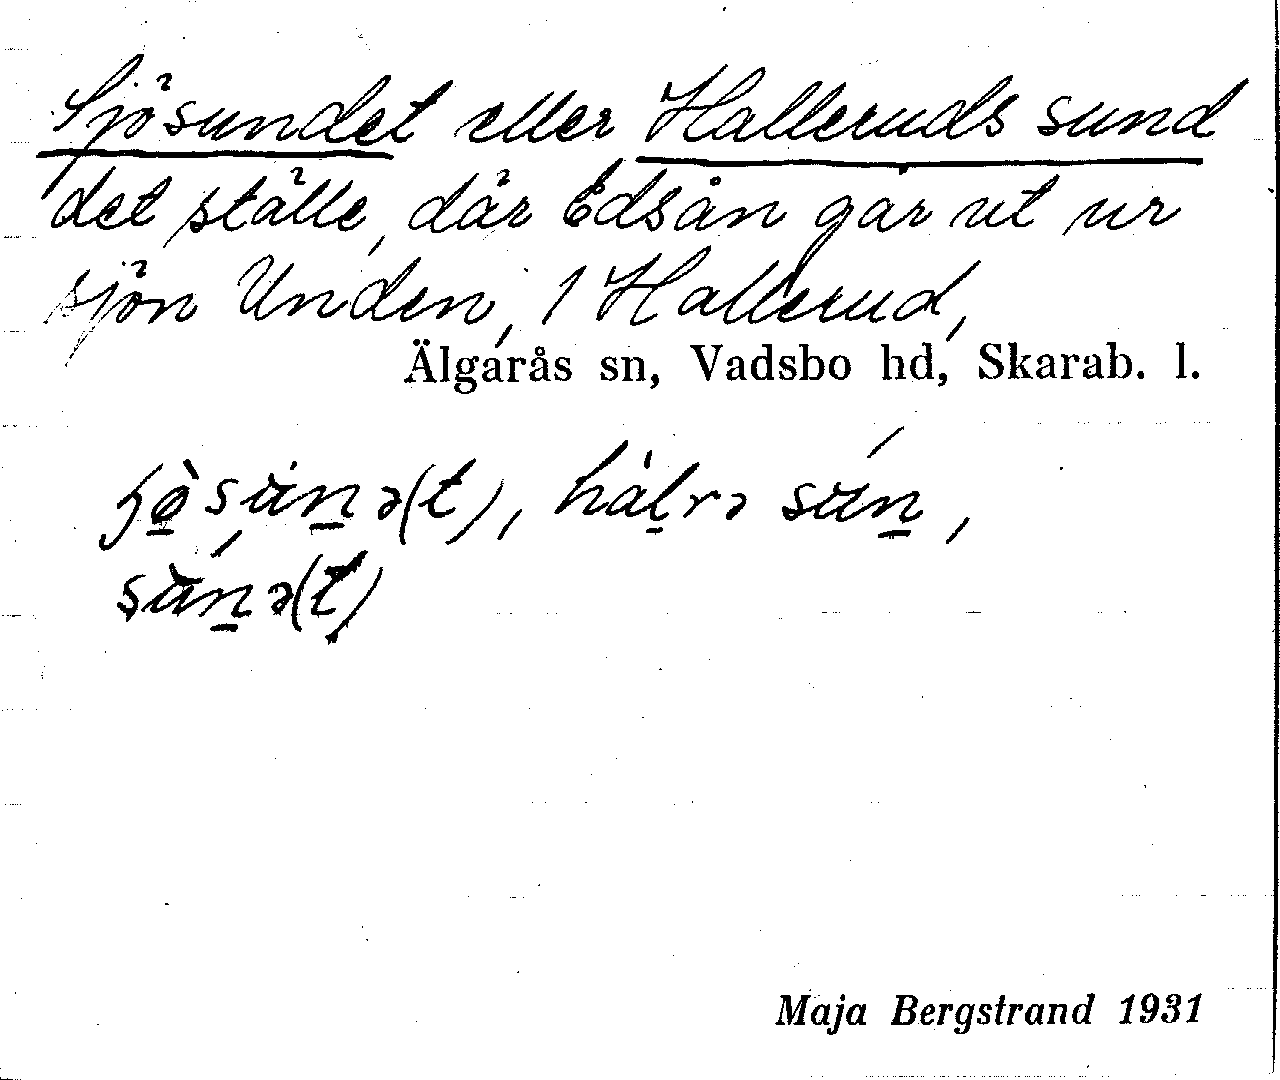 Sjösundet eller Halleruds sund
det ställe, där Edsån går ut ur
sjön Unden, 1 Hallerud,
Älgarås sn, Vadsbo hd, Skarab. l.
Maja Bergstrand 1931